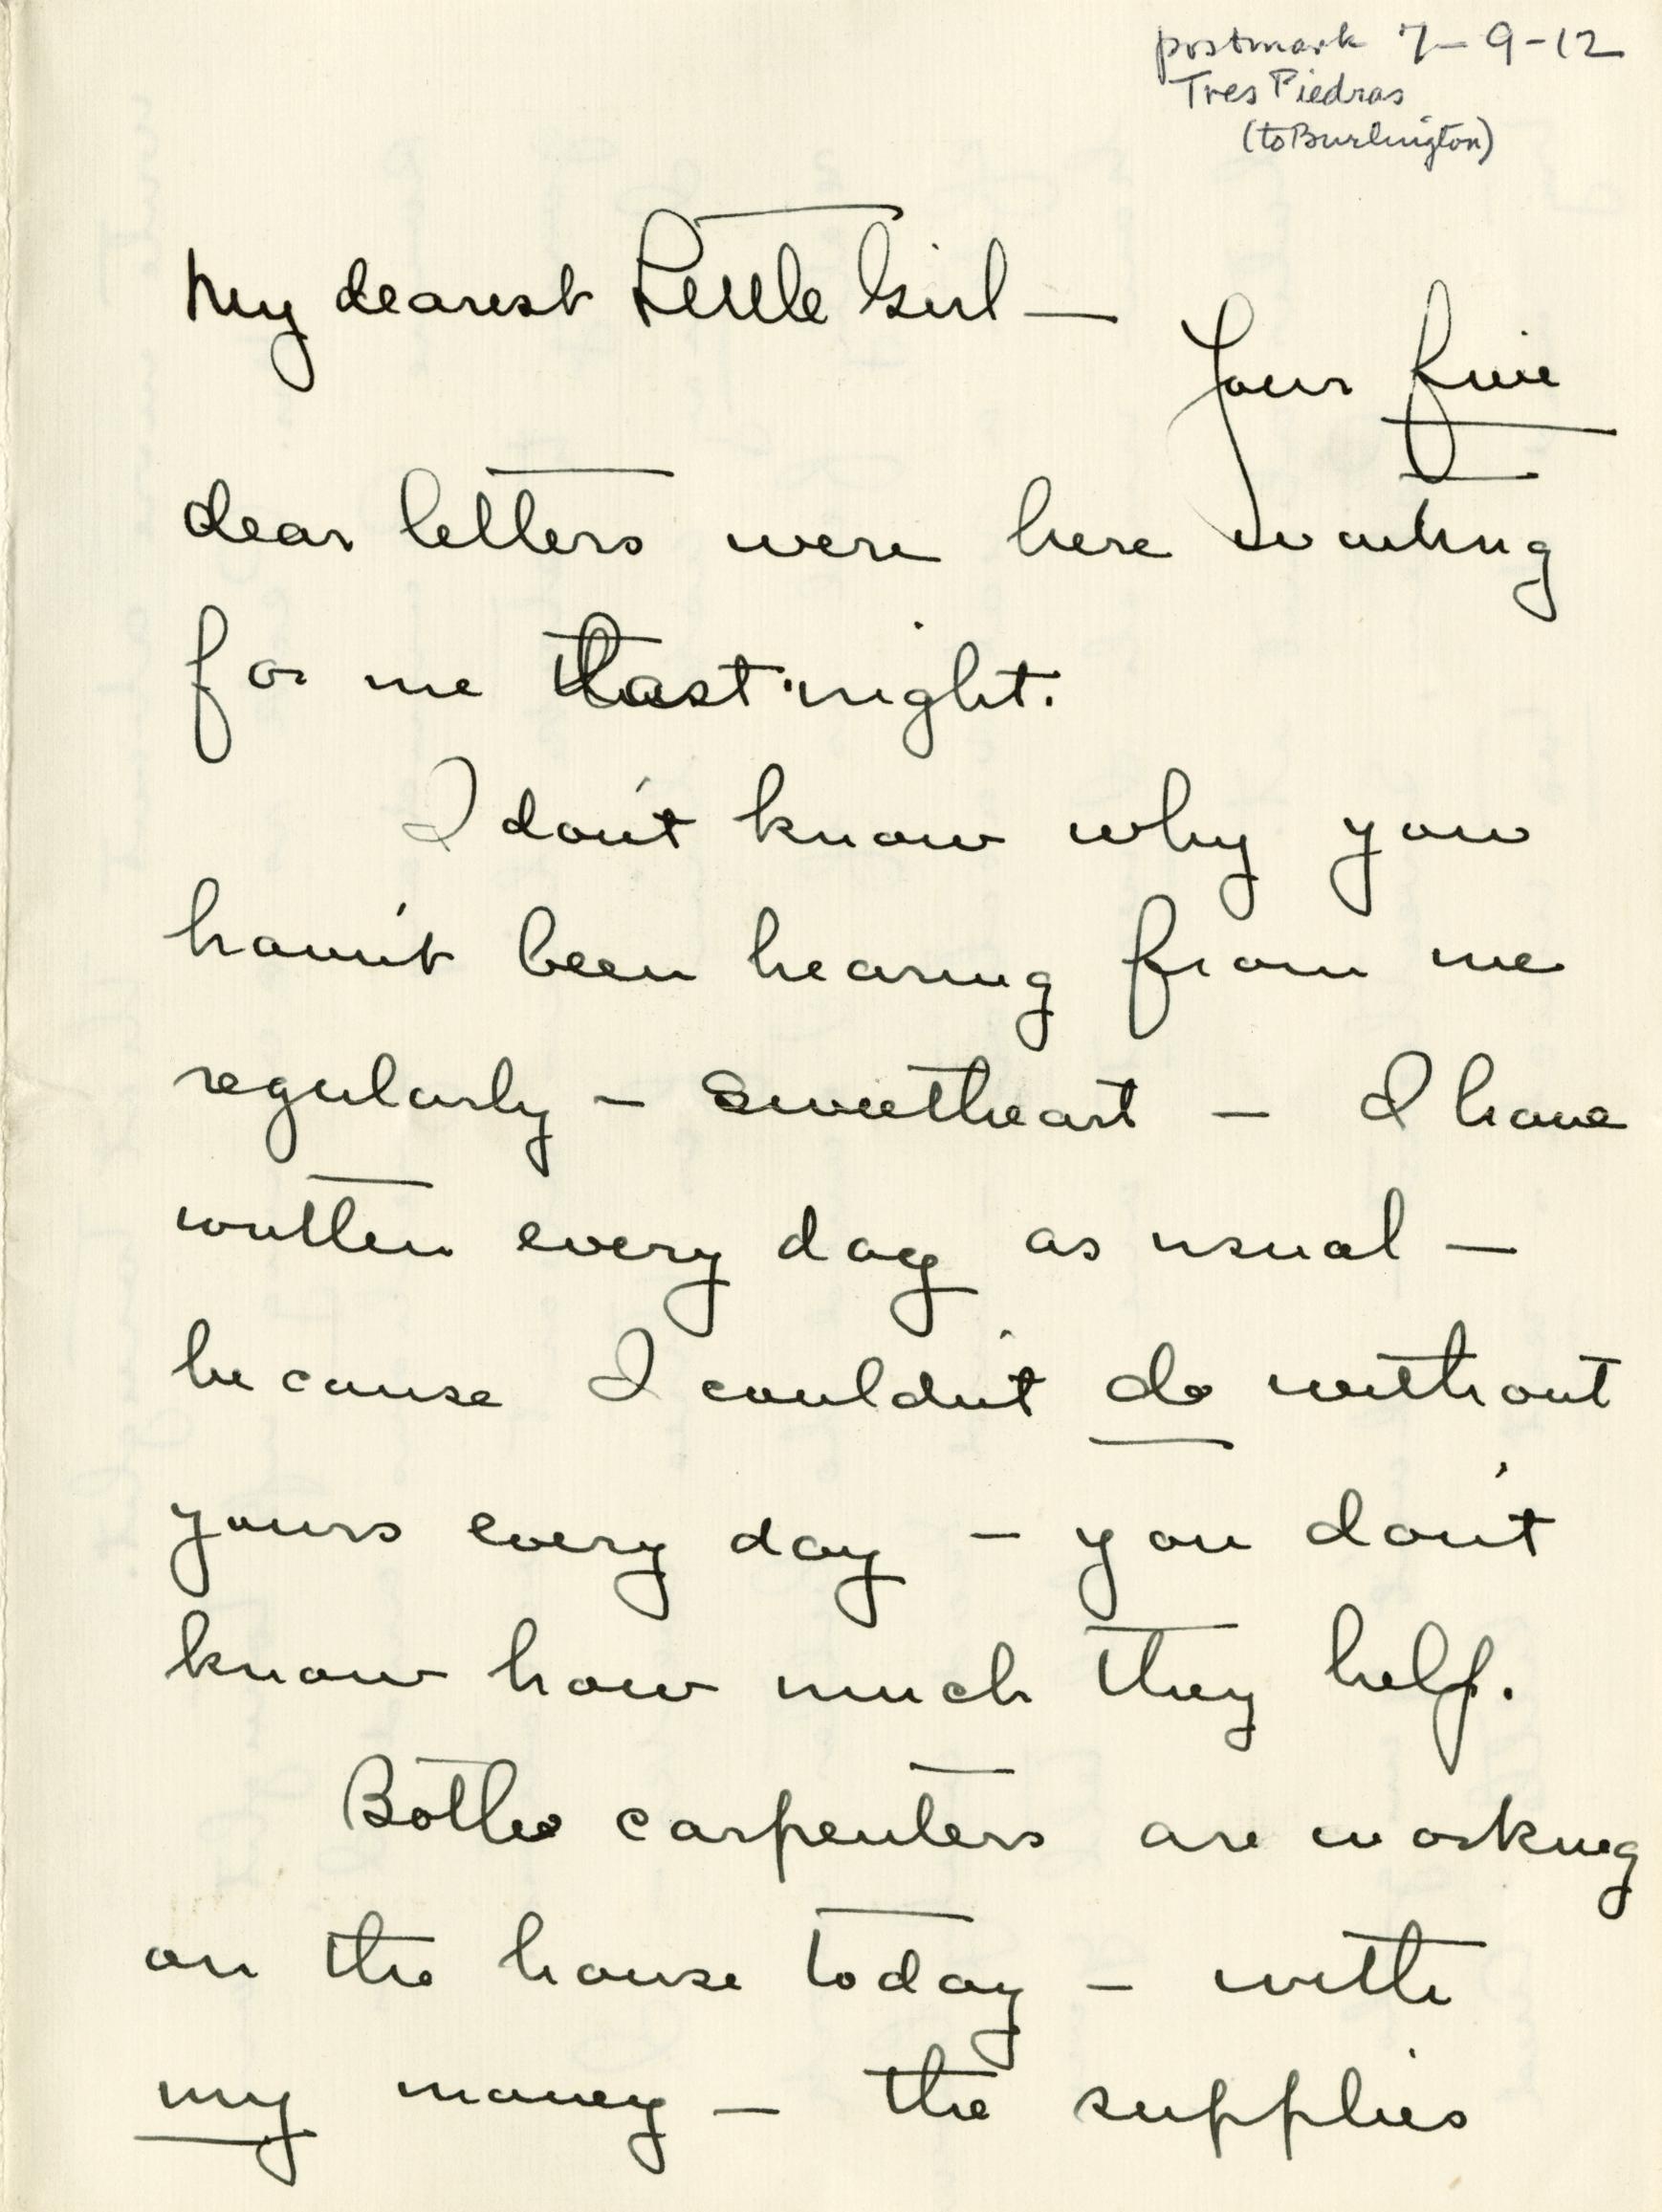 postmark 7-9-12
Tres Piedras
(to Burlington)
My dearest Little Girl —
Your five
dear letters were here waiting
for me last night.
I don't know why you
haven't been hearing from me
regularly - Sweetheart - I have
written every day as usual —
because I couldn't do without
yours every day - you don't
know how much they help.
Both carpenters are working
on the house today - with
my money - the supplies